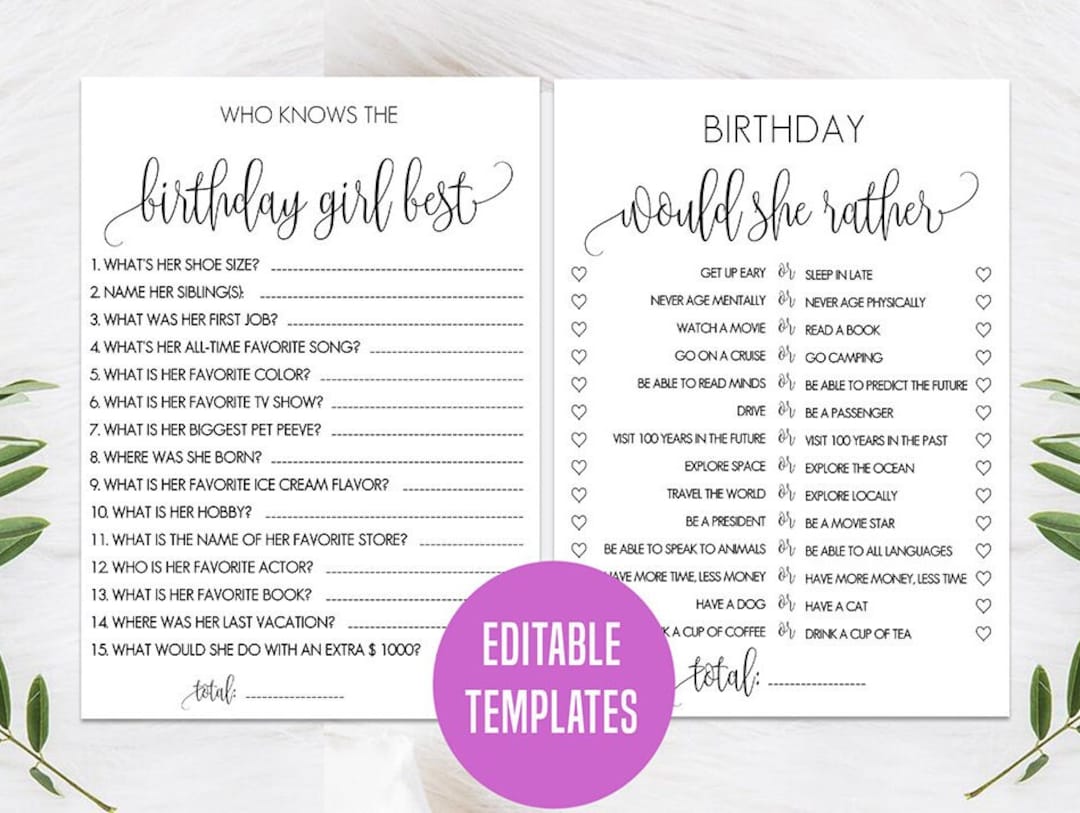 WHO KNOWS THE
birthday girl best
1. WHAT'S HER SHOE SIZE?
2. NAME HER SIBLING(S):
3. WHAT WAS HER FIRST JOB?
4. WHAT'S HER ALL-TIME FAVORITE SONG?
5. WHAT IS HER FAVORITE COLOR?
6. WHAT IS HER FAVORITE TV SHOW?
7. WHAT IS HER BIGGEST PET PEEVE?
8. WHERE WAS SHE BORN?
9. WHAT IS HER FAVORITE ICE CREAM FLAVOR?
10. WHAT IS HER HOBBY?
11. WHAT IS THE NAME OF HER FAVORITE STORE?
12. WHO IS HER FAVORITE ACTOR?
13. WHAT IS HER FAVORITE BOOK?
14. WHERE WAS HER LAST VACATION?
15. WHAT WOULD SHE DO WITH AN EXTRA $ 1000?
total:
BIRTHDAY
would she rather
GET UP EARY or SLEEP IN LATE
NEVER AGE MENTALLY or NEVER AGE PHYSICALLY
WATCH A MOVIE or READ A BOOK
GO ON A CRUISE or GO CAMPING
BE ABLE TO READ MINDS or BE ABLE TO PREDICT THE FUTURE
DRIVE or BE A PASSENGER
VISIT 100 YEARS IN THE FUTURE or VISIT 100 YEARS IN THE PAST
EXPLORE SPACE or EXPLORE THE OCEAN
TRAVEL THE WORLD or EXPLORE LOCALLY
BE A PRESIDENT or BE A MOVIE STAR
BE ABLE TO SPEAK TO ANIMALS or BE ABLE TO ALL LANGUAGES
HAVE MORE TIME, LESS MONEY or HAVE MORE MONEY, LESS TIME
HAVE A DOG or HAVE A CAT
A CUP OF COFFEE or DRINK A CUP OF TEA
total:
EDITABLE
TEMPLATES